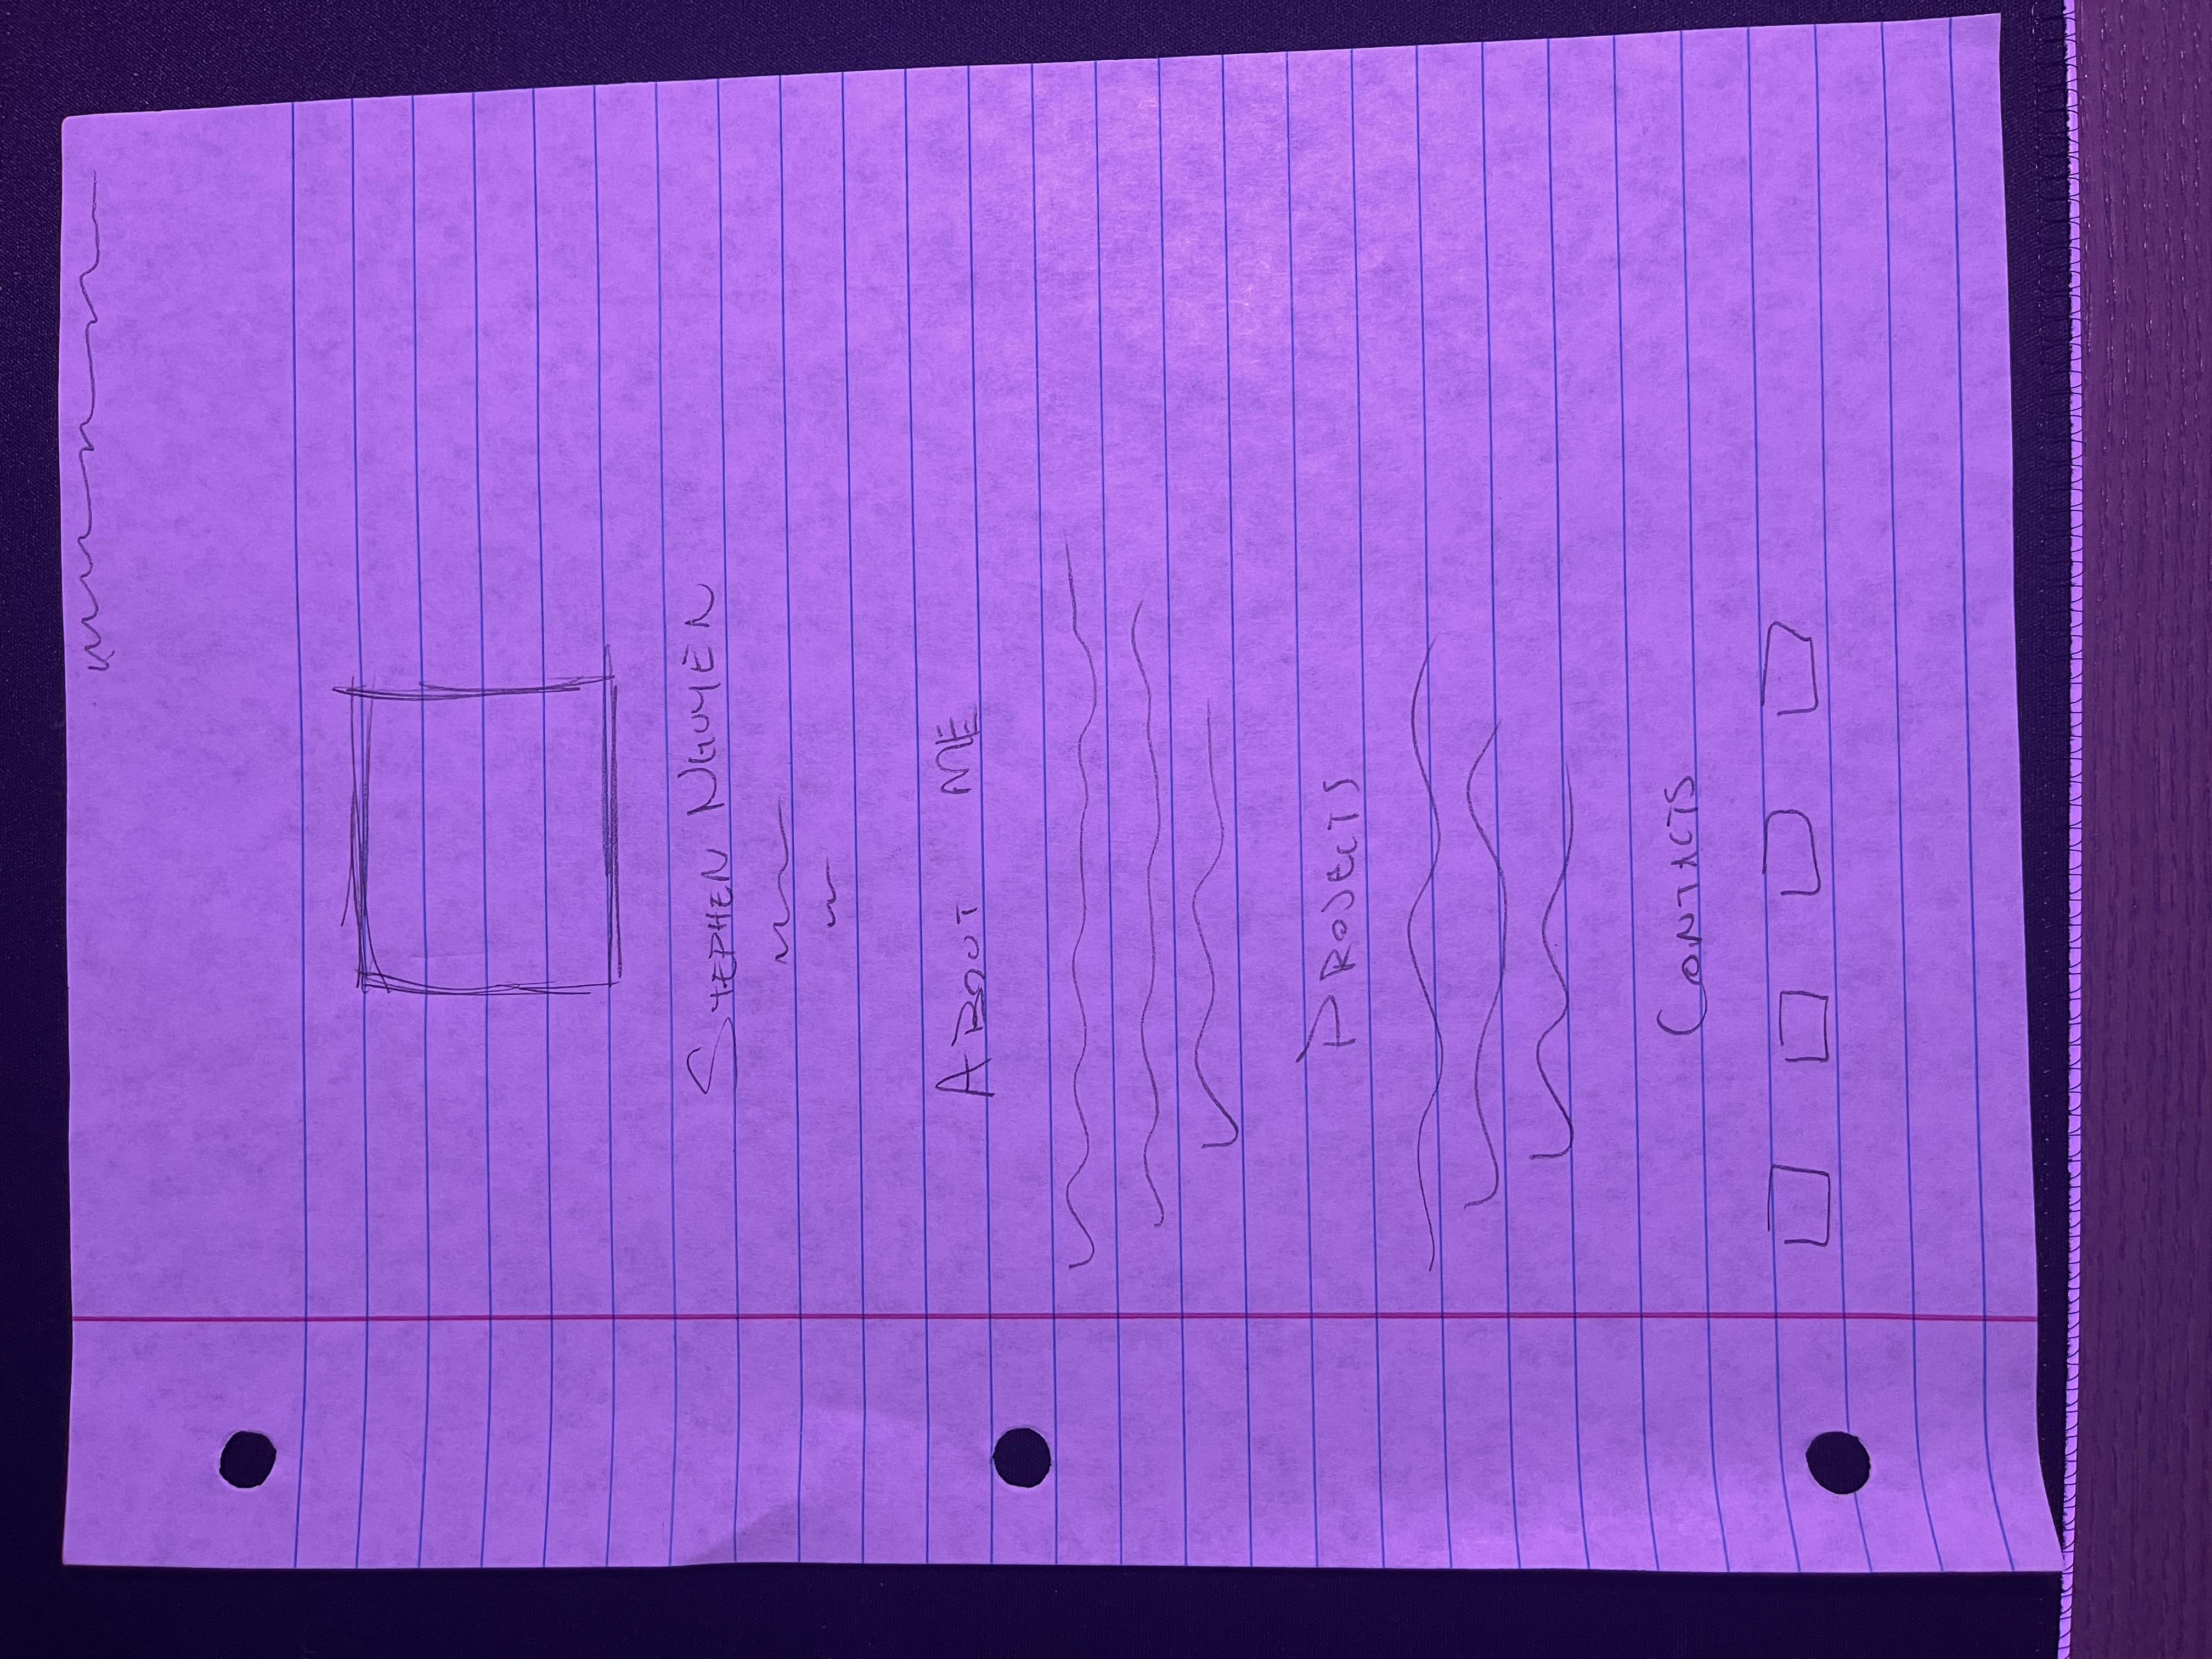 STEPHEN NGUYEN
ABOUT ME
PROJECTS
CONTACTS